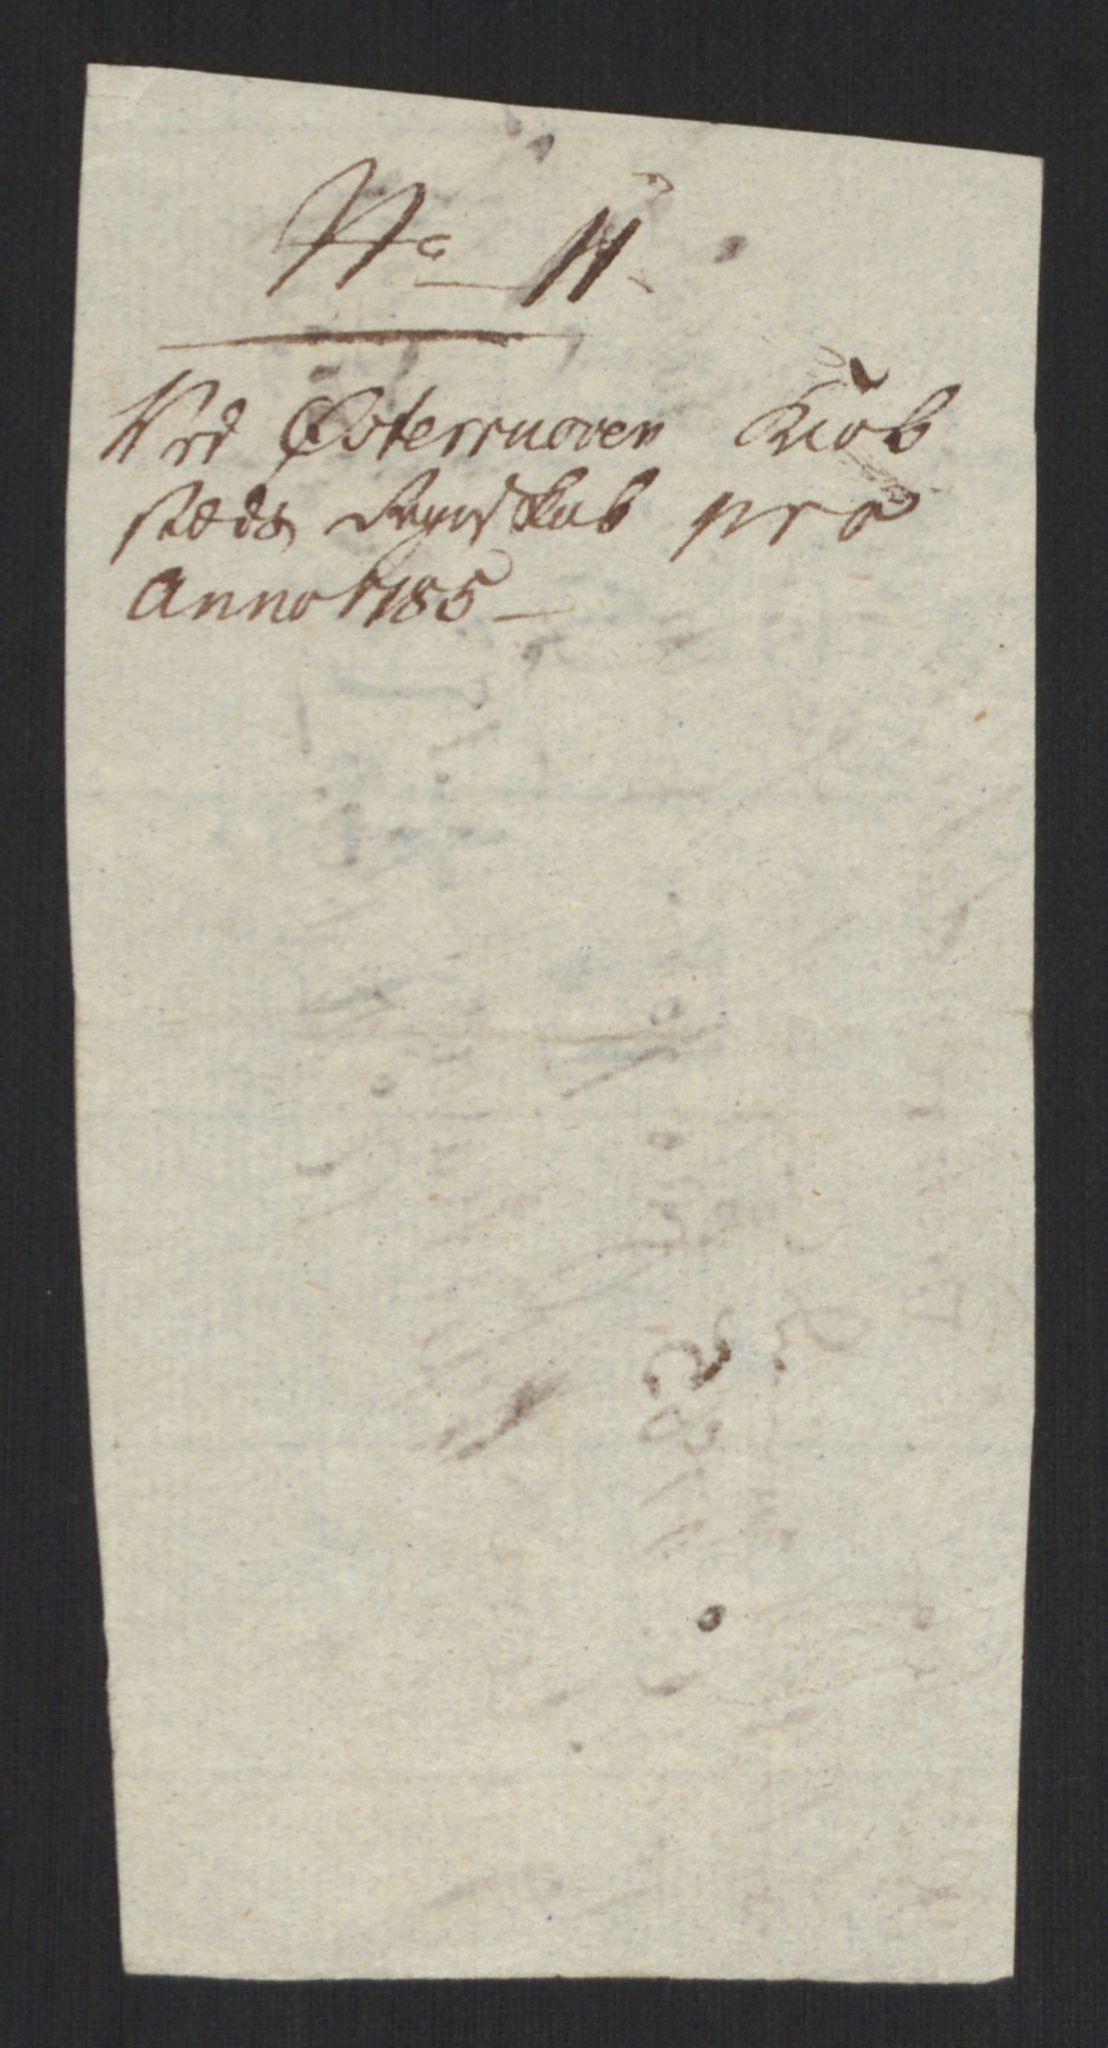 No 11
Ved Østerrisøer Kiøb
stæds Regnskab pro
Anno 1785